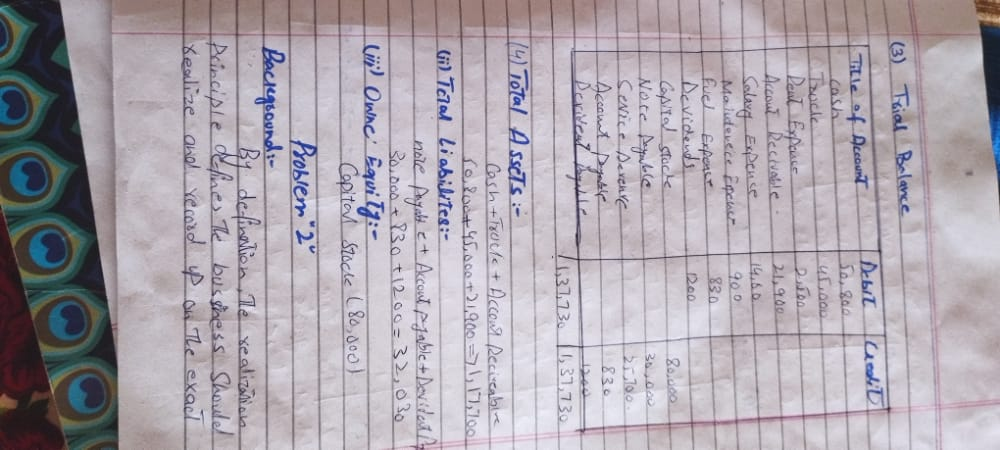 (3) Trial Balance
Title of Account Debit Credit
Cash 50,800
Truck 45,000
Rent Expense 2,500
Account Reciable. 21,900
Salary Expense 14,600
Maintenece Expense 900
Fuel Expense 830
Devidends 1200
Capital stock 80,000
Note Payable 30,000
Service Revenue 25,700.
Account Payable 830
Devident Payable 1200
1,37,730 1,37,730
(4) Total Assets:-
Cash + Truck + Account Recievable
50,800 + 45,000 + 21,900 = 1,17,700
(ii) Total Liabilites:-
note Payable + Account payable + Devident P
30,000 + 830 + 1200 = 32,030
(iii) Owner Equity:-
Capital stock (80,000)
Problem "2"
Background:-
By defination, The realization
Principle defines The bussness should
realize and record up on The exact